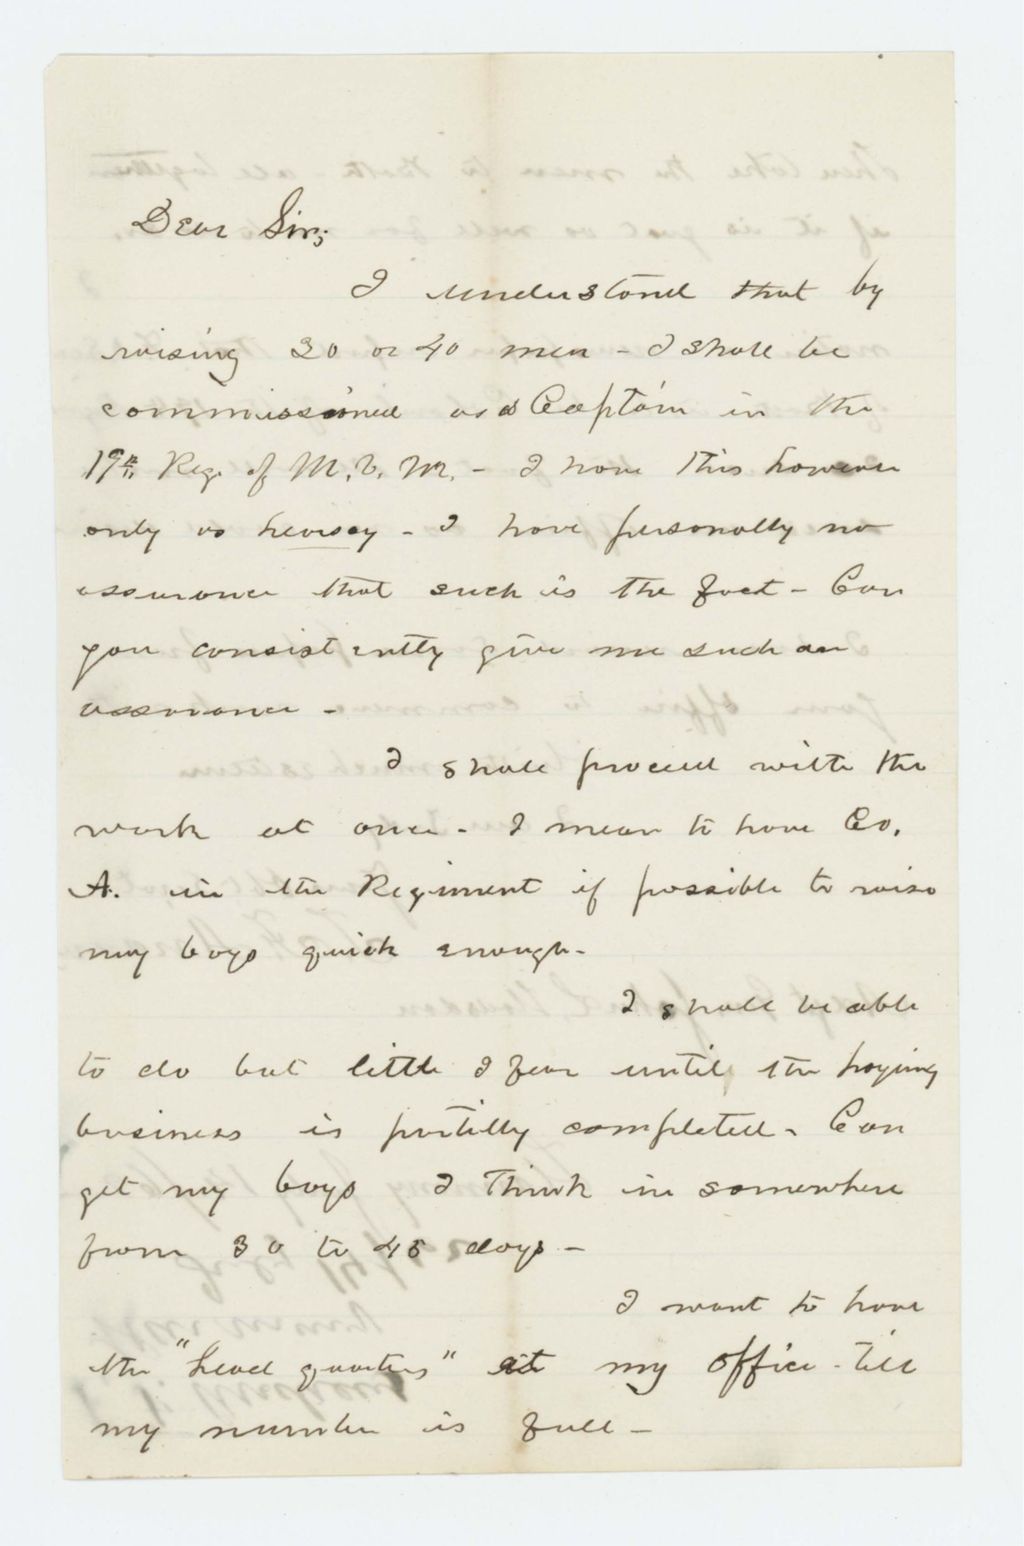 Dear Sir;
I understand that by
raising 30 or 40 men - I shall be
commissioned as a Captain in the
19th Reg. of M. V. M. - I have this however
only as hearsay - I have personally no
assurance that such is the fact - Can
you consistently give me such an
assurance -
I shall proceed with the
work at once - I mean to have Co.
A. in the Regiment if possible to raise
my boys quick enough -
I shall be able
to do but little I fear until the haying
business is partilly completed - Can
get my boys I think in somewhere
from 30 to 45 days -
I want to have
the "head quarters" at my office - till
my number is full -